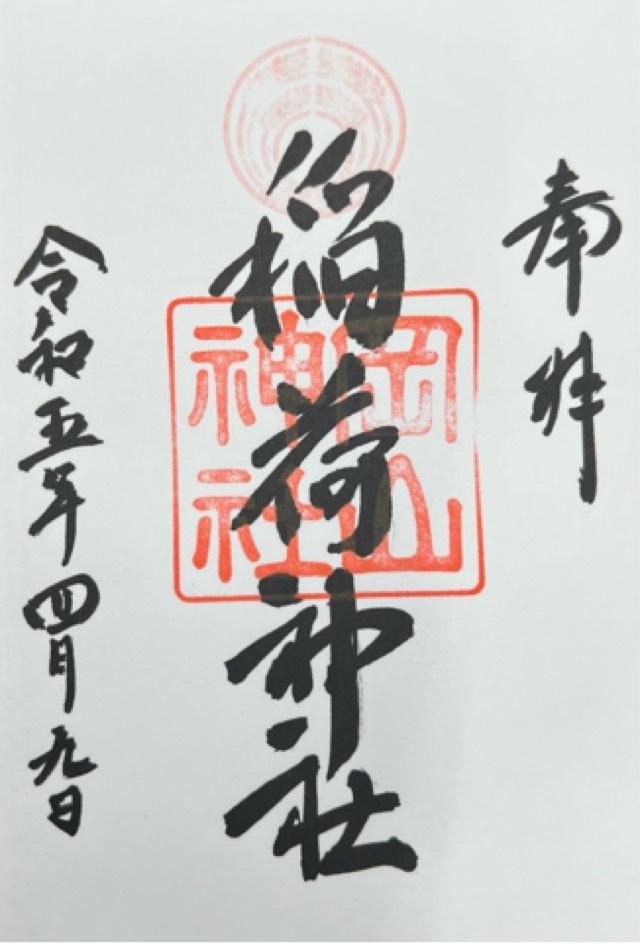 奉拝
稲荷神社
岡山
神社
令和五年四月九日